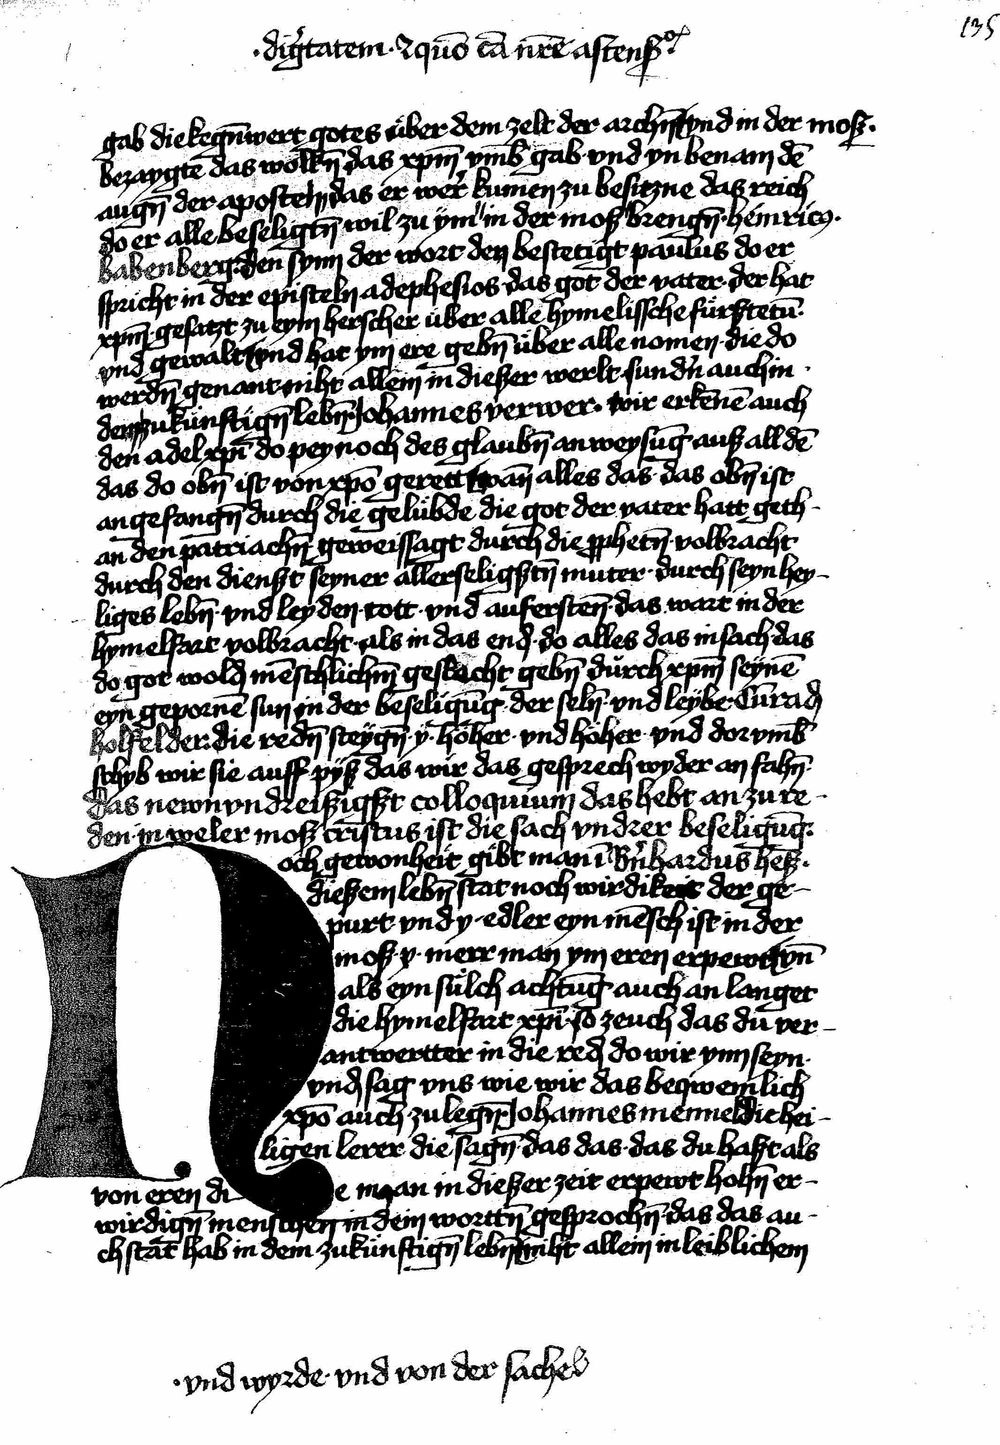 135
·digᷓtatem· ⁊ quo᷑ cā nr̄e ascenſꝰ
gab die kegn̄wert gotes über dem zelt der archn̄ vnd in der moſz·
bezaygte das wolkn̄ das xpm̄ vmb gab· vnd yn benam dē
augn̄ der aposteln das er wer kumen zu besitzne das reich
do er alle beseligtn̄ wil zu ym in der moſz brengn̄· heinricꝰ·
babenberg· den synn der wort den bestetigt paulus do er
spricht in der episteln ad ephesios· das got der vater· der hat
xpm̄ gesatzt zu eym herscher über alle hymelissche fürſtetū·
vnd gewalt vnd hat ym ere gebn̄ über alle nomen· die do
werdn̄ genant niht allein in dieſzer werlt· sundn̄ auch in·
dem zukünftign̄ lebn̄· Johannes verwer· wir erkēnē auch
den adel xp̄i do pey noch des glaubn̄ anweysūg auſz all dē
das do obn̄ ist von xpō gerett wan̄ alles das· das obn̄ ist
angefangn̄ durch die gelübde die got der vater hatt geth-
an den patriachn̄ geweissagt durch die ꝓphetn̄· volbracht
durch den dienſzt seyner allerseligſztn̄ muter· durch seyn hey-
liges lebn̄· vnd leyden· tott· vnd auferstēn̄· das wart in der
hymelfart volbracht· als in das end· do alles das in sach· das
do got wold mēschlichm̄ geslecht gebn̄ durch xpm̄ seynē
eyn gepornē sun in der beseligūg· der seln̄· vnd leybe· Cūrad
holfelder· die redn̄ steygn̄ y· höher· vnd höher· vnd dor vmb
schyb wir sie auff pyſz das wir das gesprech wyder an fahn̄·
das newn vn dreiſzigſzt colloquium das hebt an zu re-
den· in weler moſz cristus ist die sach vnßer beseligūg:
Noch gewonheit gibt man ī Bn̄hardus heſz·
dieſzem lebn̄ stat noch wirdikeit der ge-
purt vnd y· edler eyn mēsch ist in der
moſz· y· merr man ym eren erpewt vn̄
als eyn sülch achtūg auch an langet
die hymelfart xp̄i· so zeuch das du ver-
antwertter in die red do wir ynn seyn·
vnd sag vns wie wir das beqwemlich
xpō auch zu legn̄· Johannes mennel die hei-
ligen lerer die sagn̄ das das· das du haſzt als
von eren di e man in dieſzer zeit erpewt hohn̄ er-
wirdign̄ menschen in dein worttn̄ gesprochn̄· das das au-
ch stat hab in dem zukünftign̄ lebn̄ niht allein in leiblichem
·vnd wyrde· vnd von der sache